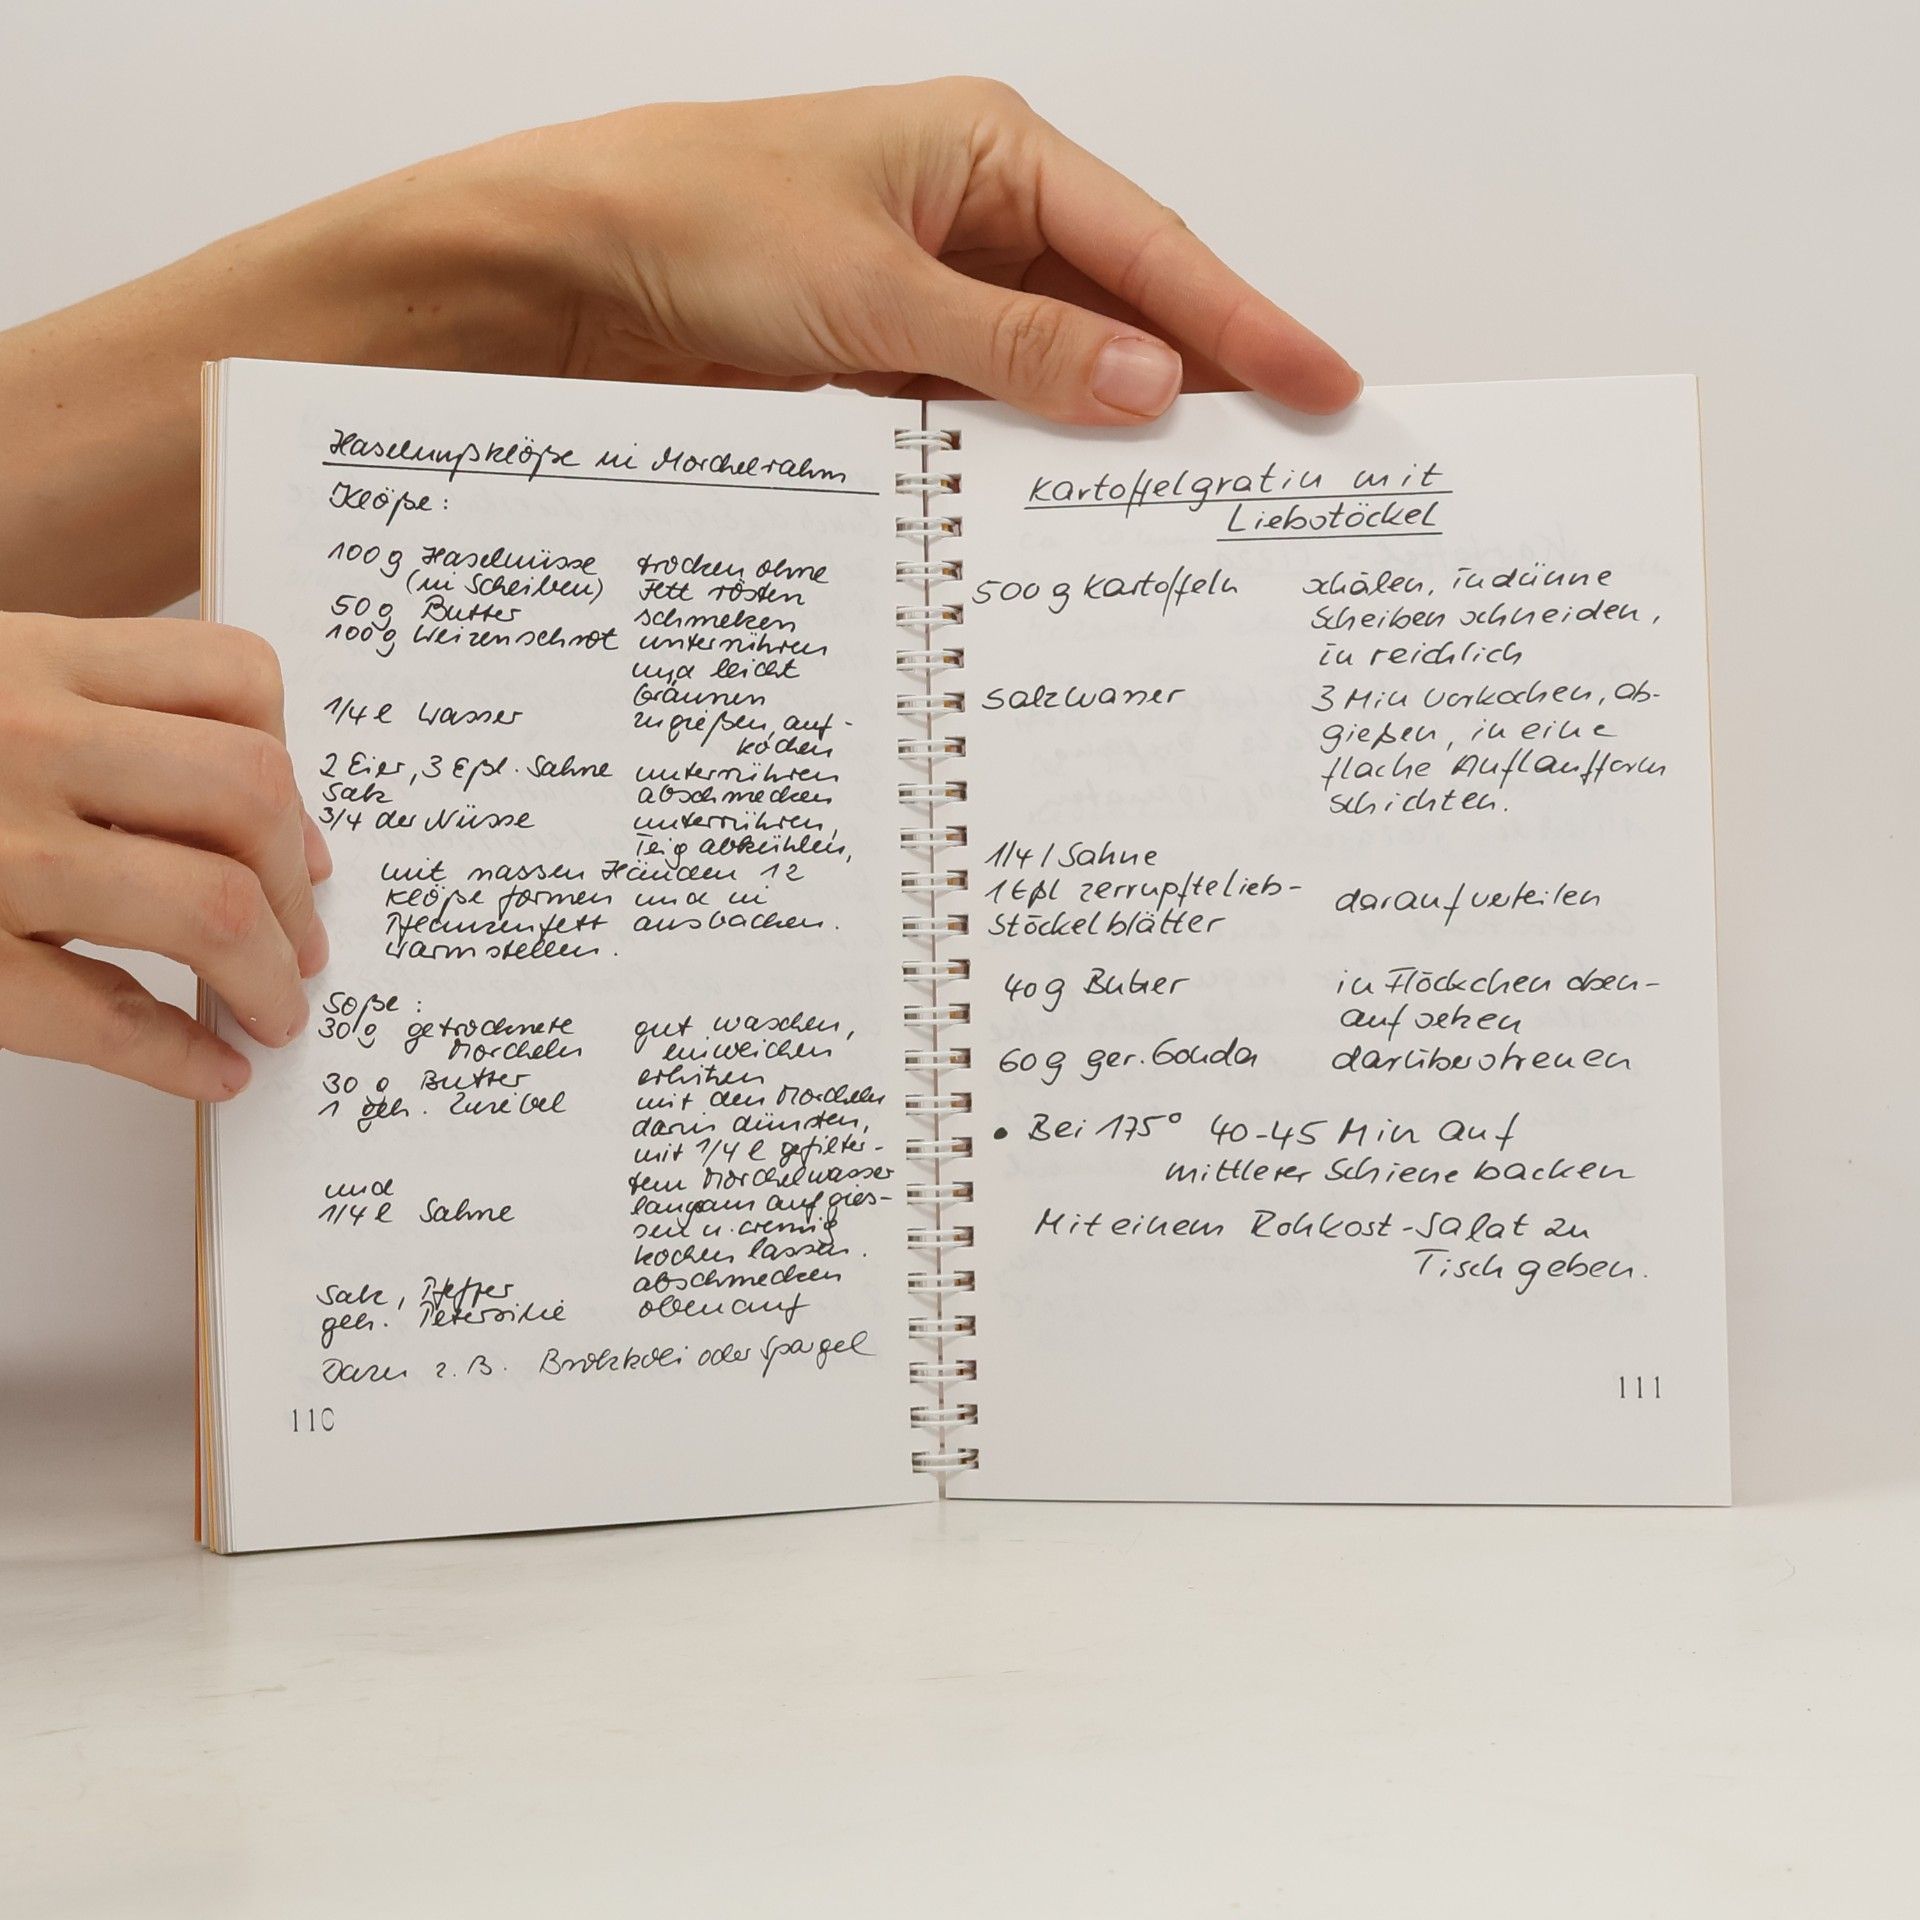 Haselnußklöße in Morchelrahm
Klöße:
100 g Haselnüsse trocken ohne
(in Scheiben) Fett rösten
50 g Butter schmelzen
100 g Weizenschrot unterrühren
und leicht
bräunen
1/4 l Wasser zugießen, auf-
kochen
2 Eier, 3 Eßl. Sahne unterrühren
Salz abschmecken
3/4 der Nüsse unterrühren,
Teig abkühlen,
mit nassen Händen 12
Klöße formen und in
Pflanzenfett ausbacken.
Warm stellen.
Soße:
30 g getrocknete gut waschen,
Morcheln einweichen
30 g Butter erhitzen
1 geh. Zwiebel mit den Morcheln
darin dünsten,
mit 1/4 l gefilter-
tem Morchelwasser
und langsam aufgies-
1/4 l Sahne sen u. cremig
kochen lassen.
Salz, Pfeffer abschmecken
geh. Petersilie obenauf
Dazu z.B. Brokkoli oder Spargel
110
Kartoffelgratin mit
Liebstöckel
500 g Kartoffeln schälen, in dünne
Scheiben schneiden,
in reichlich
Salzwasser 3 Min vorkochen, ab-
gießen, in eine
flache Auflaufform
schichten.
1/4 l Sahne
1 Eßl zerrupfte Lieb- darauf verteilen
stöckelblätter
40 g Butter in Flöckchen oben-
auf setzen
60 g ger. Gouda darüberstreuen
• Bei 175° 40-45 Min auf
mittlerer Schiene backen
Mit einem Rohkost-Salat zu
Tisch geben.
111